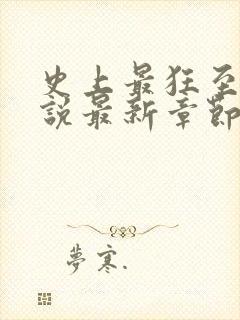 史上最狂至
說最新章節
夢寒.